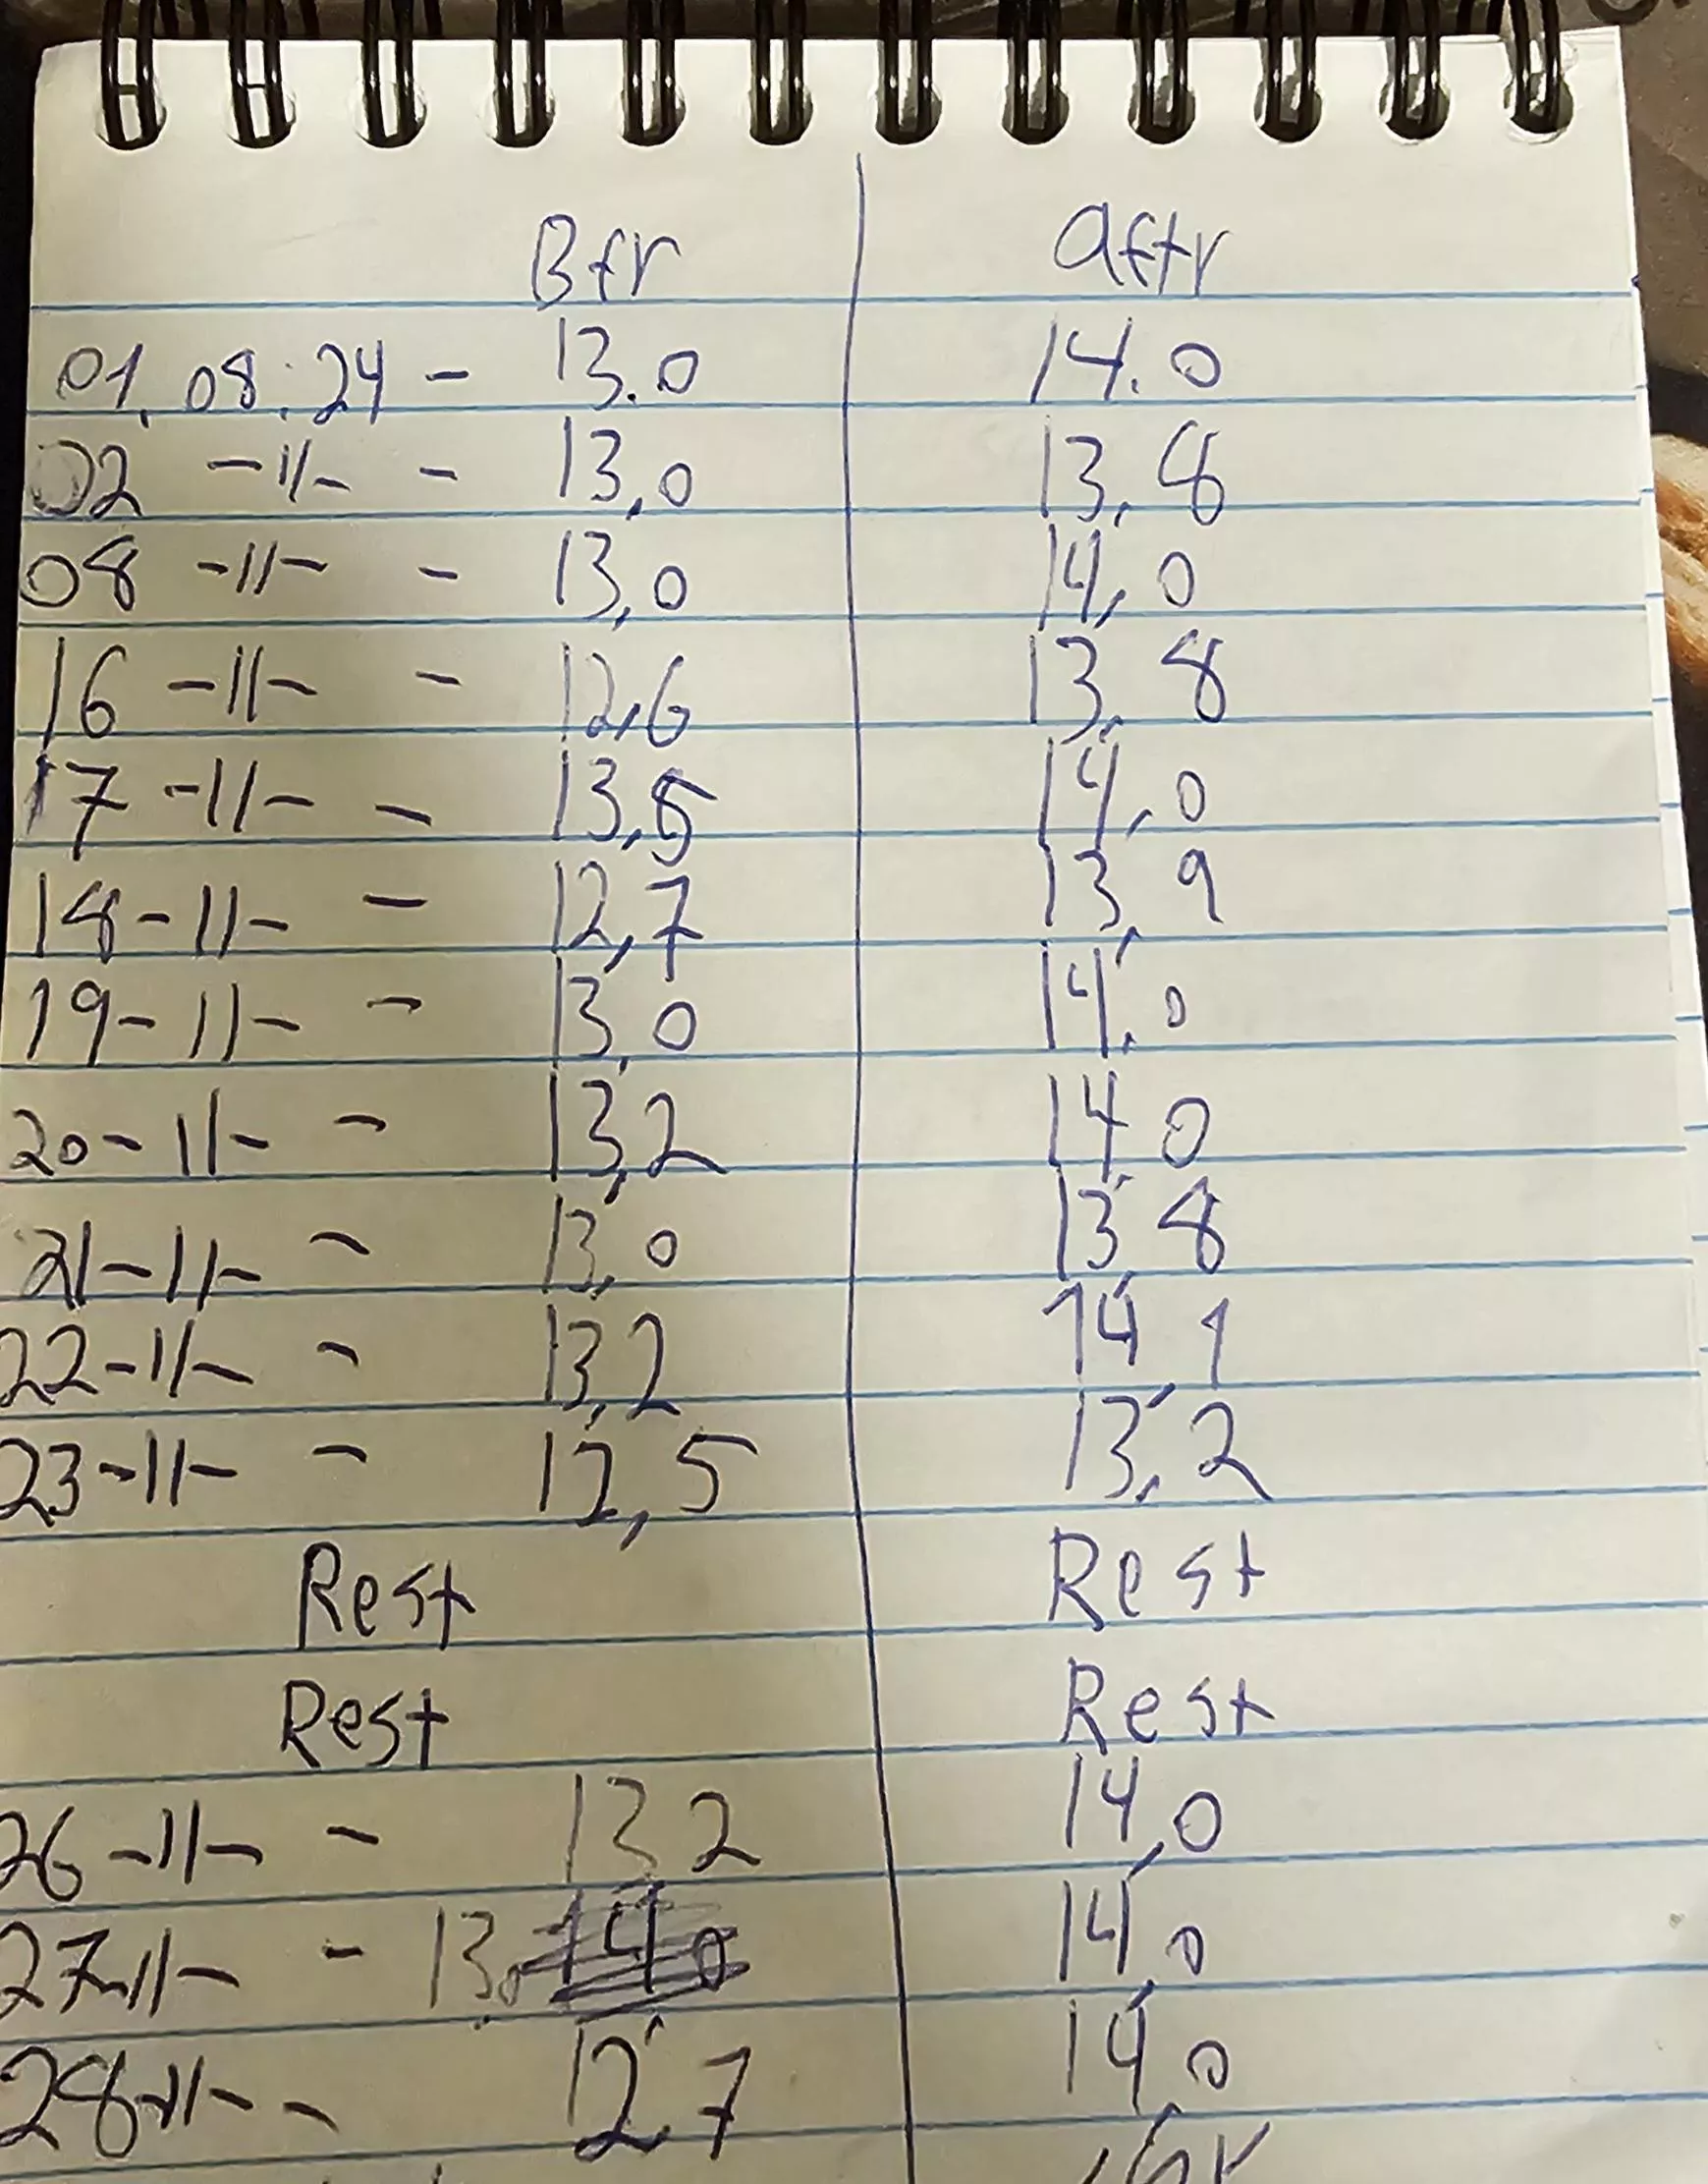 Bfr aftr
01.08.24 - 13.0 14.0
02 -11- - 13,0 13,8
08 -11- - 13,0 14,0
16 -11- - 12,6 13,8
17 -11- - 13,5 14,0
18-11- - 12,7 13,9
19-11- - 13,0 14.0
20-11- - 13,2 14,0
21-11- - 13,0 13,8
22-11- - 13,2 14,1
23-11- - 12,5 13,2
Rest Rest
Rest Rest
26-11- - 13,2 14,0
27-11- - 13.0 14,0
28-11- - 12,7 14,0